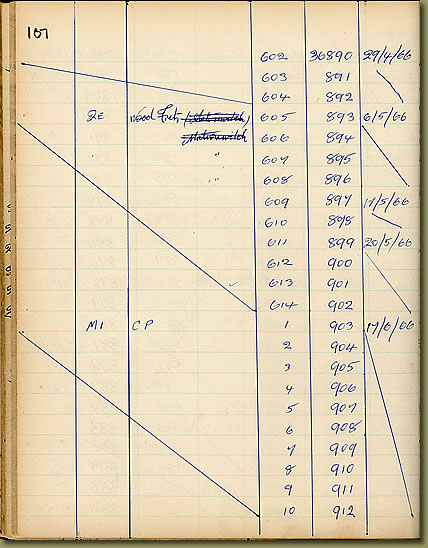 107
602 36890 29/4/66
603 891
604 892
2E 605 893 6/5/66
606 894
" 607 895
" 608 896
609 897 17/5/66
610 898
611 899 20/5/66
612 900
613 901
614 902
M1 CP 1 903 17/6/66
2 904
3 905
4 906
5 907
6 908
7 909
8 910
9 911
10 912